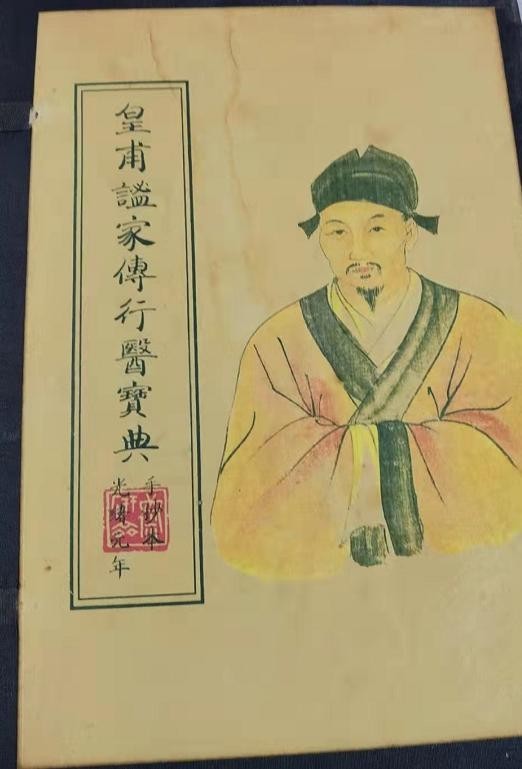 皇甫謐家傳行醫寶典
手抄本
光緒元年